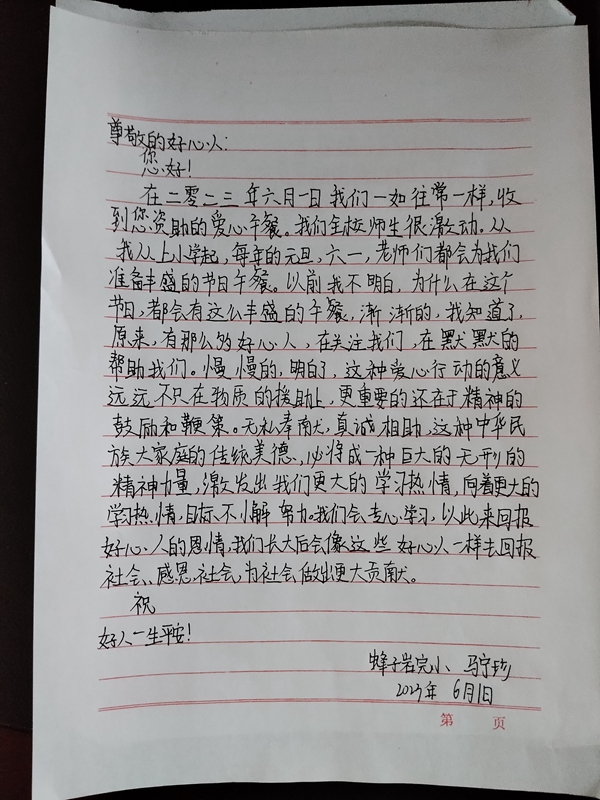 尊敬的好心人:
您好!
在二零二三年六月一日我们一如往常一样,收
到您资助的爱心午餐。我们全校师生很激动。从
我从上小学起,每年的元旦,六一,老师们都会为我们
准备丰盛的节日午餐。以前我不明白,为什么在这个
节日,都会有这么丰盛的午餐,渐渐的,我知道了,
原来,有那么多好心人,在关注我们,在默默的
帮助我们。慢慢的,明白了,这种爱心行动的意义
远远不只在物质的援助上,更重要的还在于精神的
鼓励和鞭策。无私奉献,真诚相助,这种中华民
族大家庭的传统美德,必将成一种巨大的无形的
精神力量,激发出我们更大的学习热情,向着更大的
学习热情,目标、不懈努力。我们会专心学习,以此来回报
好心人的恩情,我们长大后会像这些好心人一样去回报
社会、感恩社会,为社会做出更大贡献。
祝
好人一生平安!
蜂子岩完小、马宁
2023年 6月1日
第 页